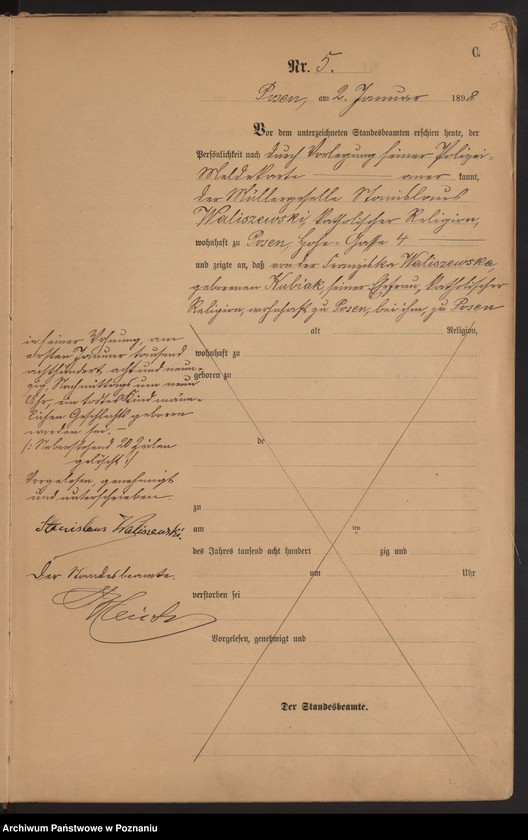 C.
Nr. 5.
Posen, am 2. Januar 1898
Vor dem unterzeichneten Standesbeamten erschien heute, der
Persönlichkeit nach durch Vorlegung seiner Polizei-
Meldekarte aner kannt,
der Müllergeselle Stanislaus
Waliszewski, katholischer Religion,
wohnhaft zu Posen, Hohe-Gasse 4
und zeigte an, daß von der Franziska Waliszewska
geborenen Kubiak, seiner Ehefrau, katholischer
Religion, wohnhaft zu Posen, bei ihm, zu Posen
alt Religion,
wohnhaft zu
geboren zu
de
zu
am ten
des Jahres tausend acht hundert zig und
um Uhr
verstorben sei
Vorgelesen, genehmigt und
Der Standesbeamte.
in seiner Wohnung, am
ersten Januar tausend
achthundert acht und neun-
zig, Nachmittags um neun
Uhr, ein todtes Kind männ-
lichen Geschlechts geboren
worden sei. —
/: Nebenstehend 20 Zeilen
gelöscht :/
Vorgelesen, genehmigt
und unterschrieben.
Stanislaus Waliszewski.
Der Standesbeamte.
Archiwum Państwowe w Poznaniu